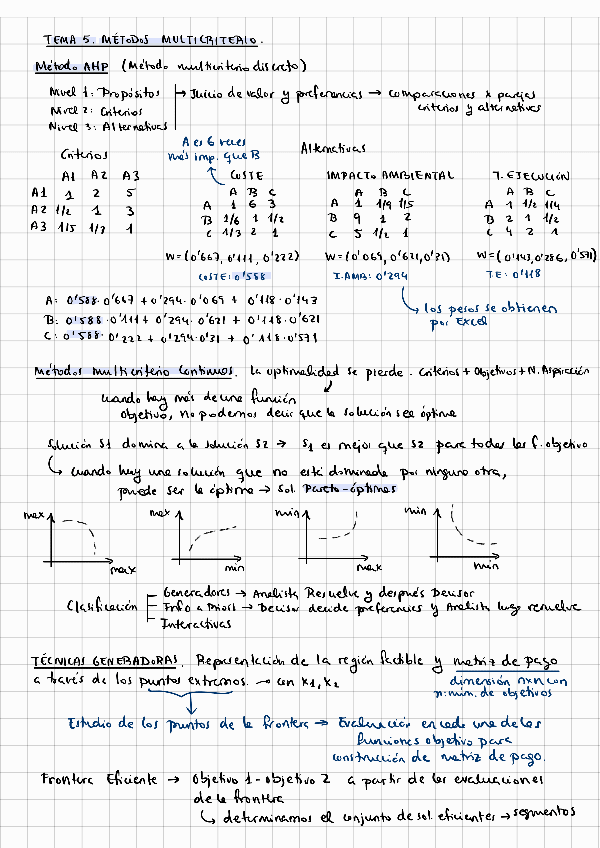 TEMA 5. MÉTODOS MULTICRITERIO.
Método AHP (Método multicriterio discreto)
Nivel 1: Propósitos → Juicio de valor y preferencias → comparaciones x parejas
Nivel 2: Criterios criterios y alternativas
Nivel 3: Alternativas
A es 6 veces
más imp. que B
Criterios Alternativas
A1 A2 A3 COSTE IMPACTO AMBIENTAL T. EJECUCIÓN
A B C A B C A B C
A1 1 2 5 A 1 6 3 A 1 1/9 1/5 A 1 1/2 1/4
A2 1/2 1 3 B 1/6 1 1/2 B 9 1 2 B 2 1 1/2
A3 1/5 1/3 1 C 1/3 2 1 C 5 1/2 1 C 4 2 1
W=(0'667, 0'111, 0'222) W=(0'069, 0'621, 0'31) W=(0'143, 0'286, 0'571)
COSTE: 0'588 I.AMB: 0'294 T.E: 0'118
A: 0'588·0'667 + 0'294·0'069 + 0'118·0'143
B: 0'588·0'111 + 0'294·0'621 + 0'118·0'621
C: 0'588·0'222 + 0'294·0'31 + 0'118·0'571
↳ los pesos se obtienen
por Excel
Métodos multicriterio continuos. La optimalidad se pierde. Criterios + Objetivos + N. Aspiración
cuando hay más de una función
objetivo, no podemos decir que la solución sea óptima
Solución S1 domina a la solución S2 → S1 es mejor que S2 para todas las f. objetivo
↳ cuando hay una solución que no está dominada por ninguna otra,
puede ser la óptima → Sol. Pareto-óptimas
max max min min
max min max min
Clasificación Generadores → Analista Resuelve y después Decisor
Info a Priori → Decisor decide preferencias y Analista luego resuelve
Interactivas
TÉCNICAS GENERADORAS. Representación de la región factible y matriz de pago
a través de los puntos extremos. → con x1, x2 dimensión nxn con
n: núm. de objetivos
Estudio de los puntos de la frontera → Evaluación en cada una de las
funciones objetivo para
construcción de matriz de pago.
Frontera Eficiente → Objetivo 1 - objetivo 2 a partir de las evaluaciones
de la frontera
↳ determinamos el conjunto de sol. eficientes → segmentos